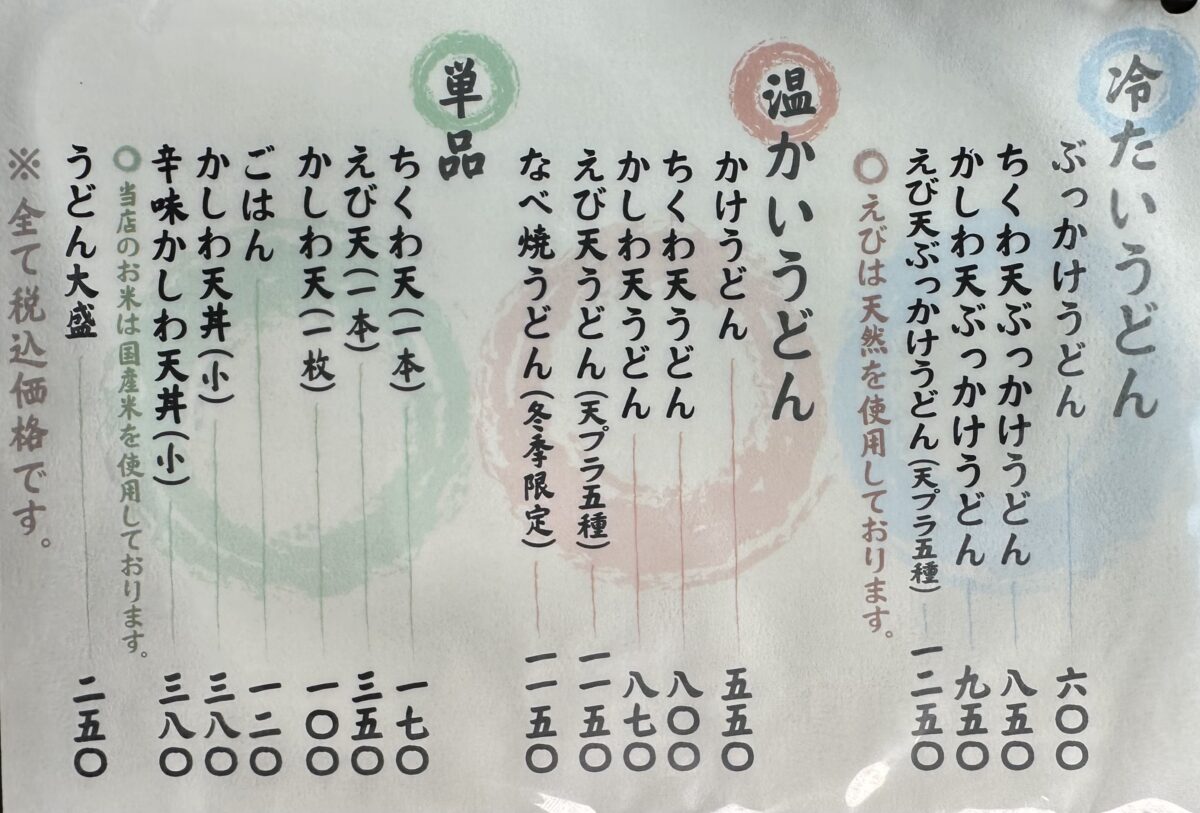 冷たいうどん
ぶっかけうどん 六〇〇
ちくわ天ぶっかけうどん 八五〇
かしわ天ぶっかけうどん 九五〇
えび天ぶっかけうどん(天プラ五種) 一二五〇
〇えびは天然を使用しております。
温かいうどん
かけうどん 五五〇
ちくわ天うどん 八〇〇
かしわ天うどん 八七〇
えび天うどん(天プラ五種) 一一五〇
なべ焼うどん(冬季限定) 一一五〇
単品
ちくわ天(一本) 一七〇
えび天(一本) 三五〇
かしわ天(一枚) 一〇〇
ごはん 一二〇
かしわ天丼(小) 三八〇
辛味かしわ天丼(小) 三八〇
〇当店のお米は国産米を使用しております。
うどん大盛 二五〇
※全て税込価格です。